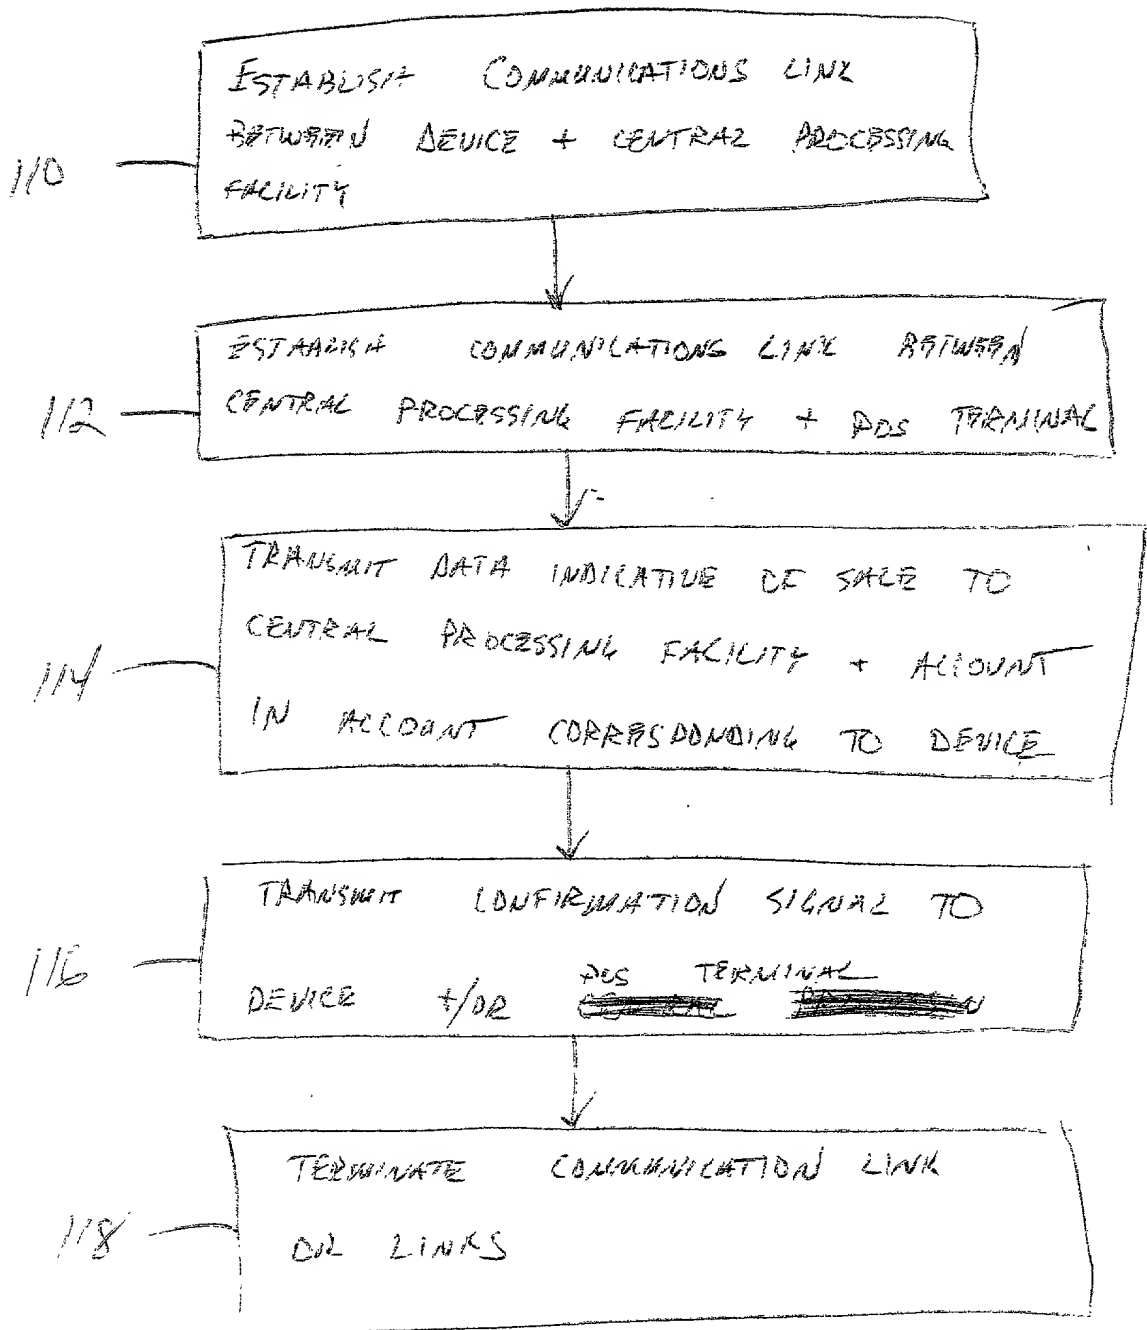 110
ESTABLISH COMMUNICATIONS LINK
BETWEEN DEVICE + CENTRAL PROCESSING
FACILITY
112
ESTABLISH COMMUNICATIONS LINK BETWEEN
CENTRAL PROCESSING FACILITY + POS TERMINAL
114
TRANSMIT DATA INDICATIVE OF SALE TO
CENTRAL PROCESSING FACILITY + ACCOUNT
IN ACCOUNT CORRESPONDING TO DEVICE
116
TRANSMIT CONFIRMATION SIGNAL TO
POS TERMINAL
DEVICE +/OR
118
TERMINATE COMMUNICATION LINK
OR LINKS